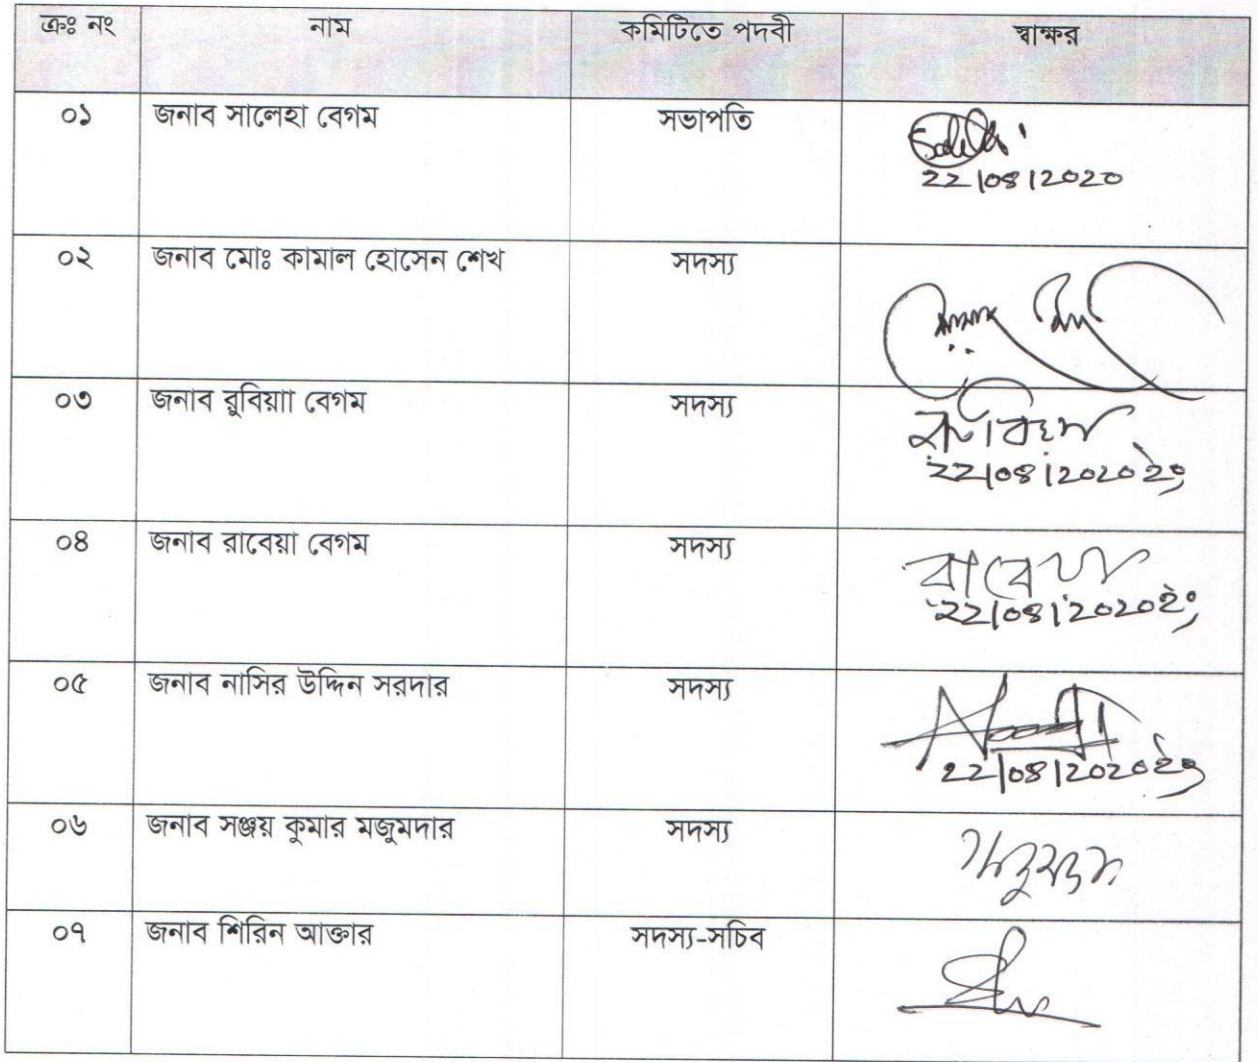 ক্রঃ নং নাম কমিটিতে পদবী স্বাক্ষর
০১ জনাব সালেহা বেগম সভাপতি
22/08/2020
০২ জনাব মোঃ কামাল হোসেন শেখ সদস্য
০৩ জনাব রুবিয়াা বেগম সদস্য
22/08/2020ইং
০৪ জনাব রাবেয়া বেগম সদস্য রাবেয়া
22/08/2020ইং
০৫ জনাব নাসির উদ্দিন সরদার সদস্য
22/08/2020ইং
০৬ জনাব সঞ্জয় কুমার মজুমদার সদস্য
০৭ জনাব শিরিন আক্তার সদস্য-সচিব